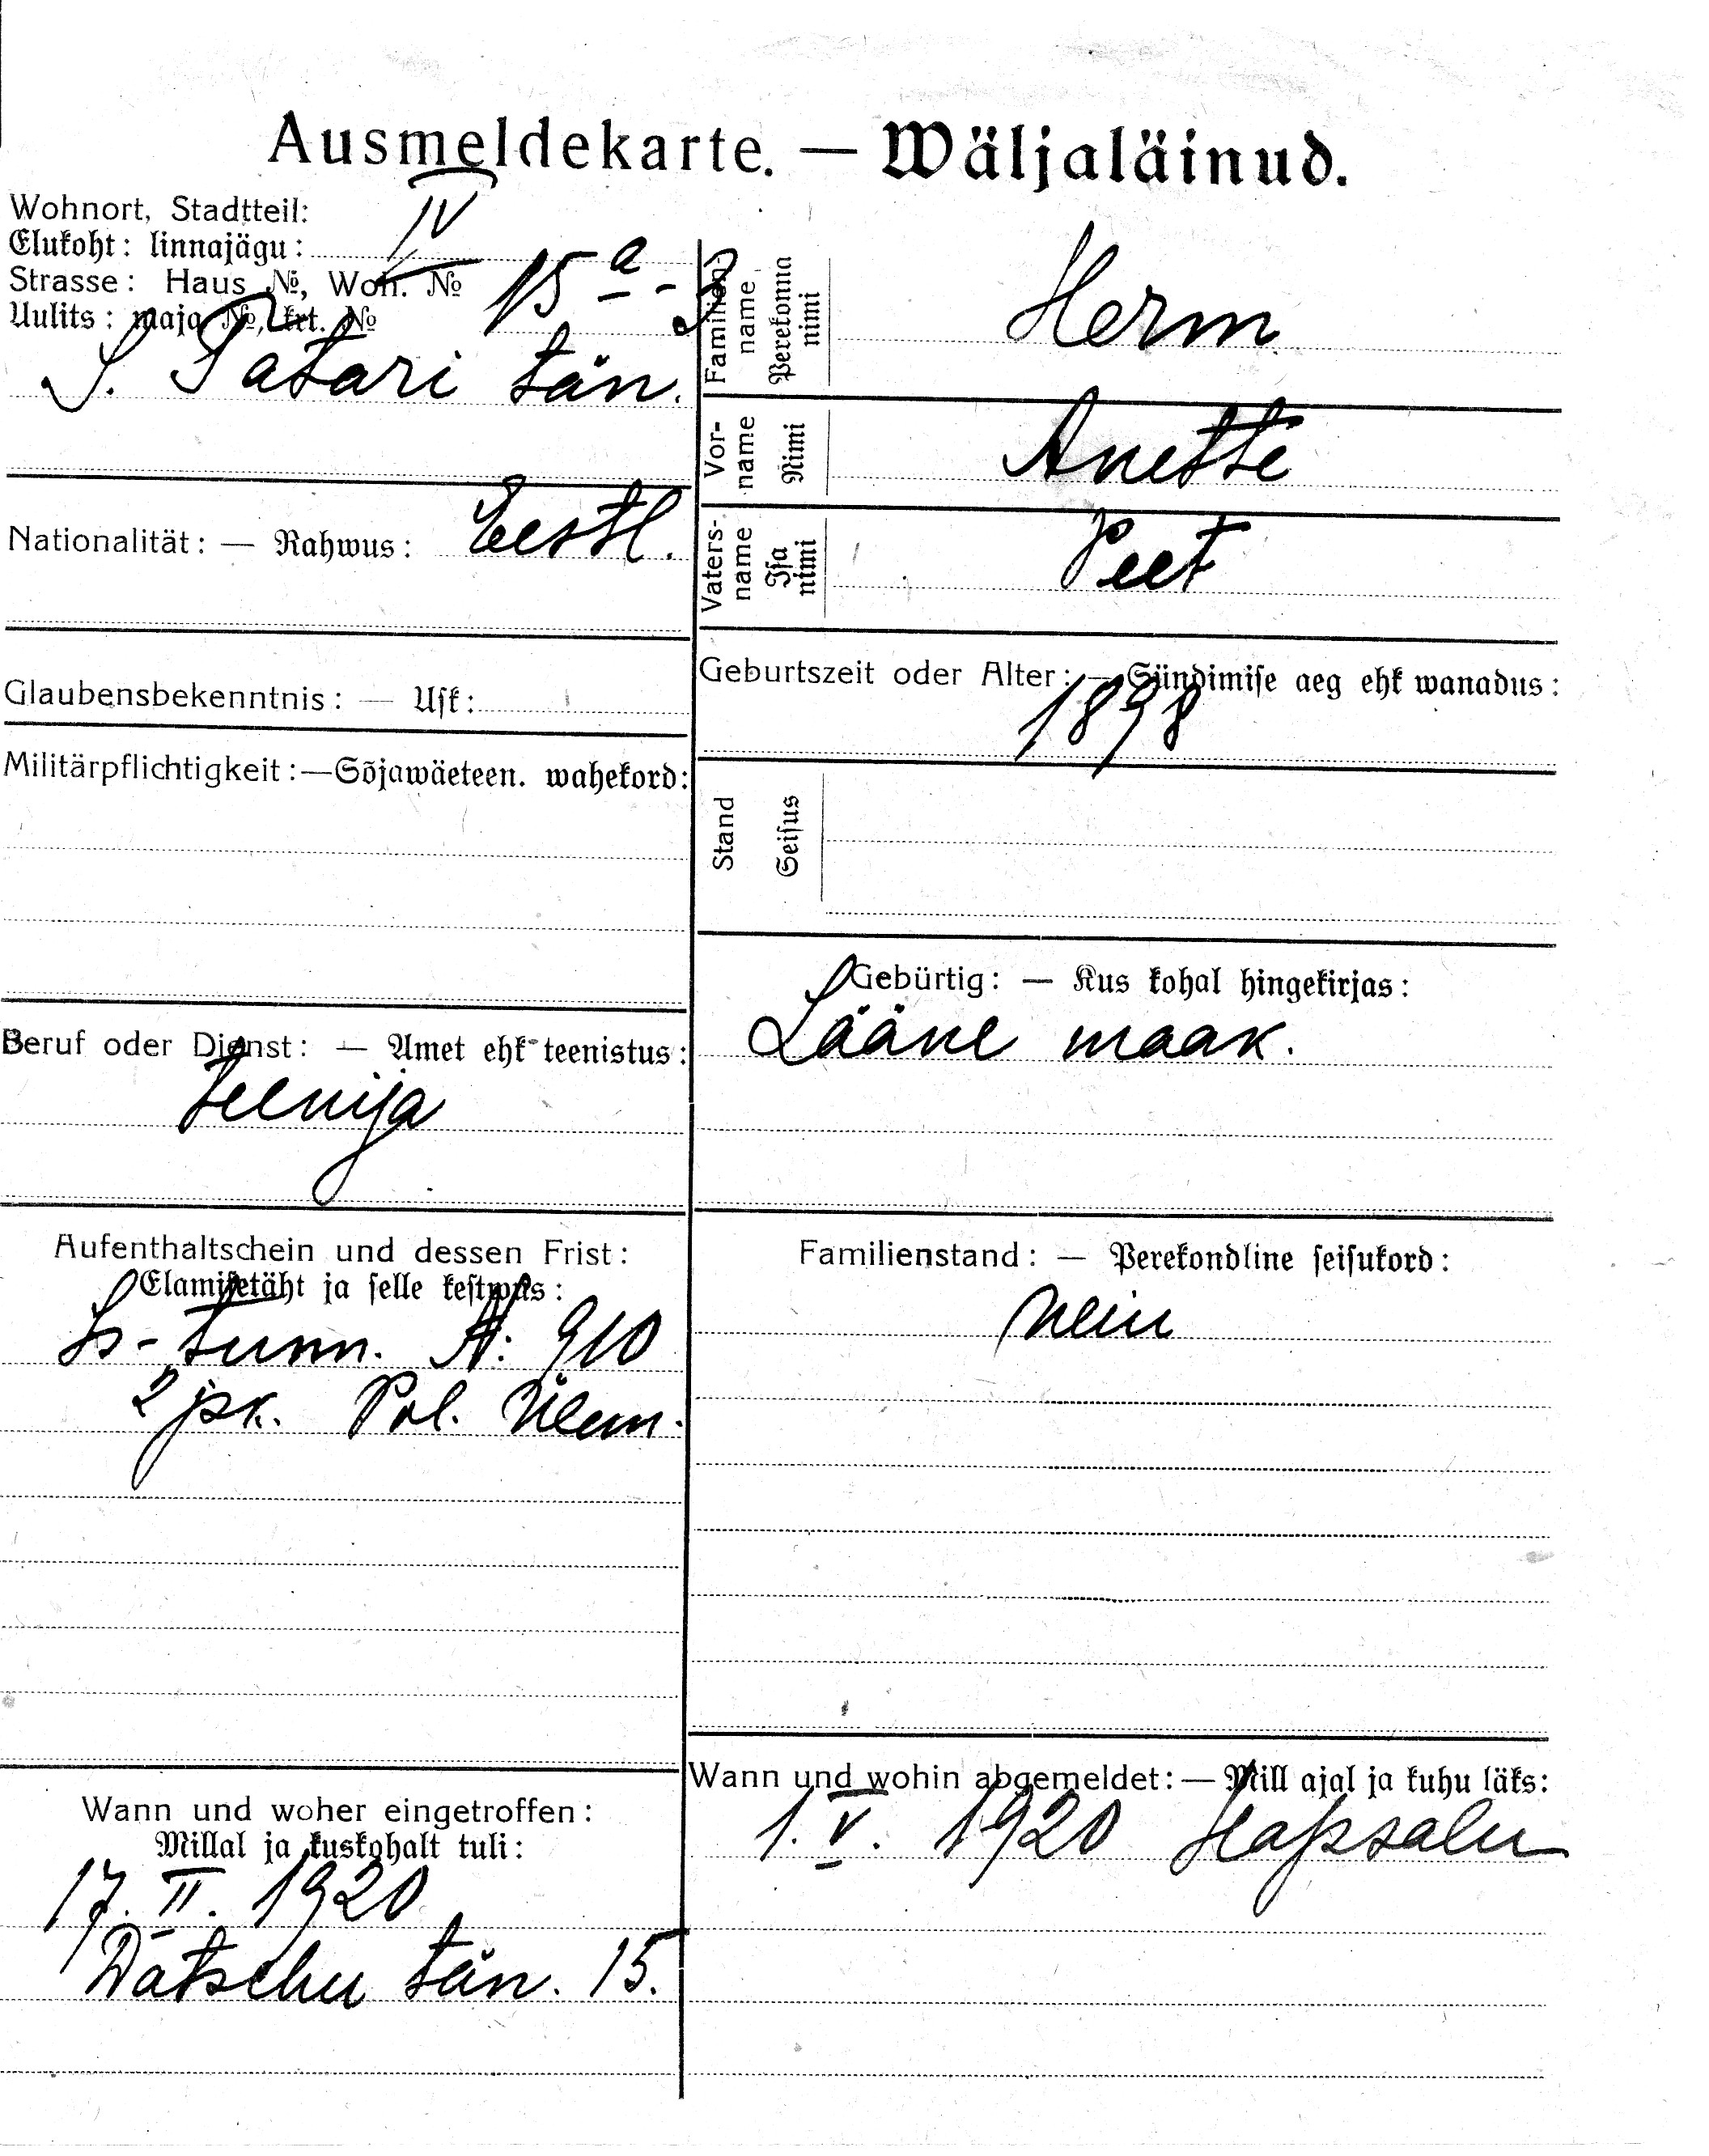 Ausmeldekarte. — Wäljaläinud.
Wohnort, Stadtteil:
Elukoht: linnajägu: IV
Strasse: Haus №, Woh. №
Uulits: maja №, krt. № 15 a - 3
S. Tatari tän.
Familien-
name
Perekonna
nimi
Herm
Vor-
name
Nimi
Anette
Vaters-
name
Isa
nimi
Peet
Nationalität: — Rahwus: Eestl.
Glaubensbekenntnis: — Usk:
Geburtszeit oder Alter: — Sündimise aeg ehk wanadus:
1898
Militärpflichtigkeit: — Sõjawäeteen. wahekord:
Stand
Seisus
Gebürtig: — Kus kohal hingekirjas:
Lääne maak.
Beruf oder Dienst: — Amet ehk teenistus:
teenija
Aufenthaltschein und dessen Frist:
Elamisetäht ja selle kestwus:
tunn. №: 910
2 jsk. Pol. Ülem.
Familienstand: — Perekondline seisukord:
Neiu
Wann und woher eingetroffen:
Millal ja kuskohalt tuli:
17. II. 1920
Datschu tän. 15.
Wann und wohin abgemeldet: — Mill ajal ja kuhu läks:
1. V. 1920 Hapsalu